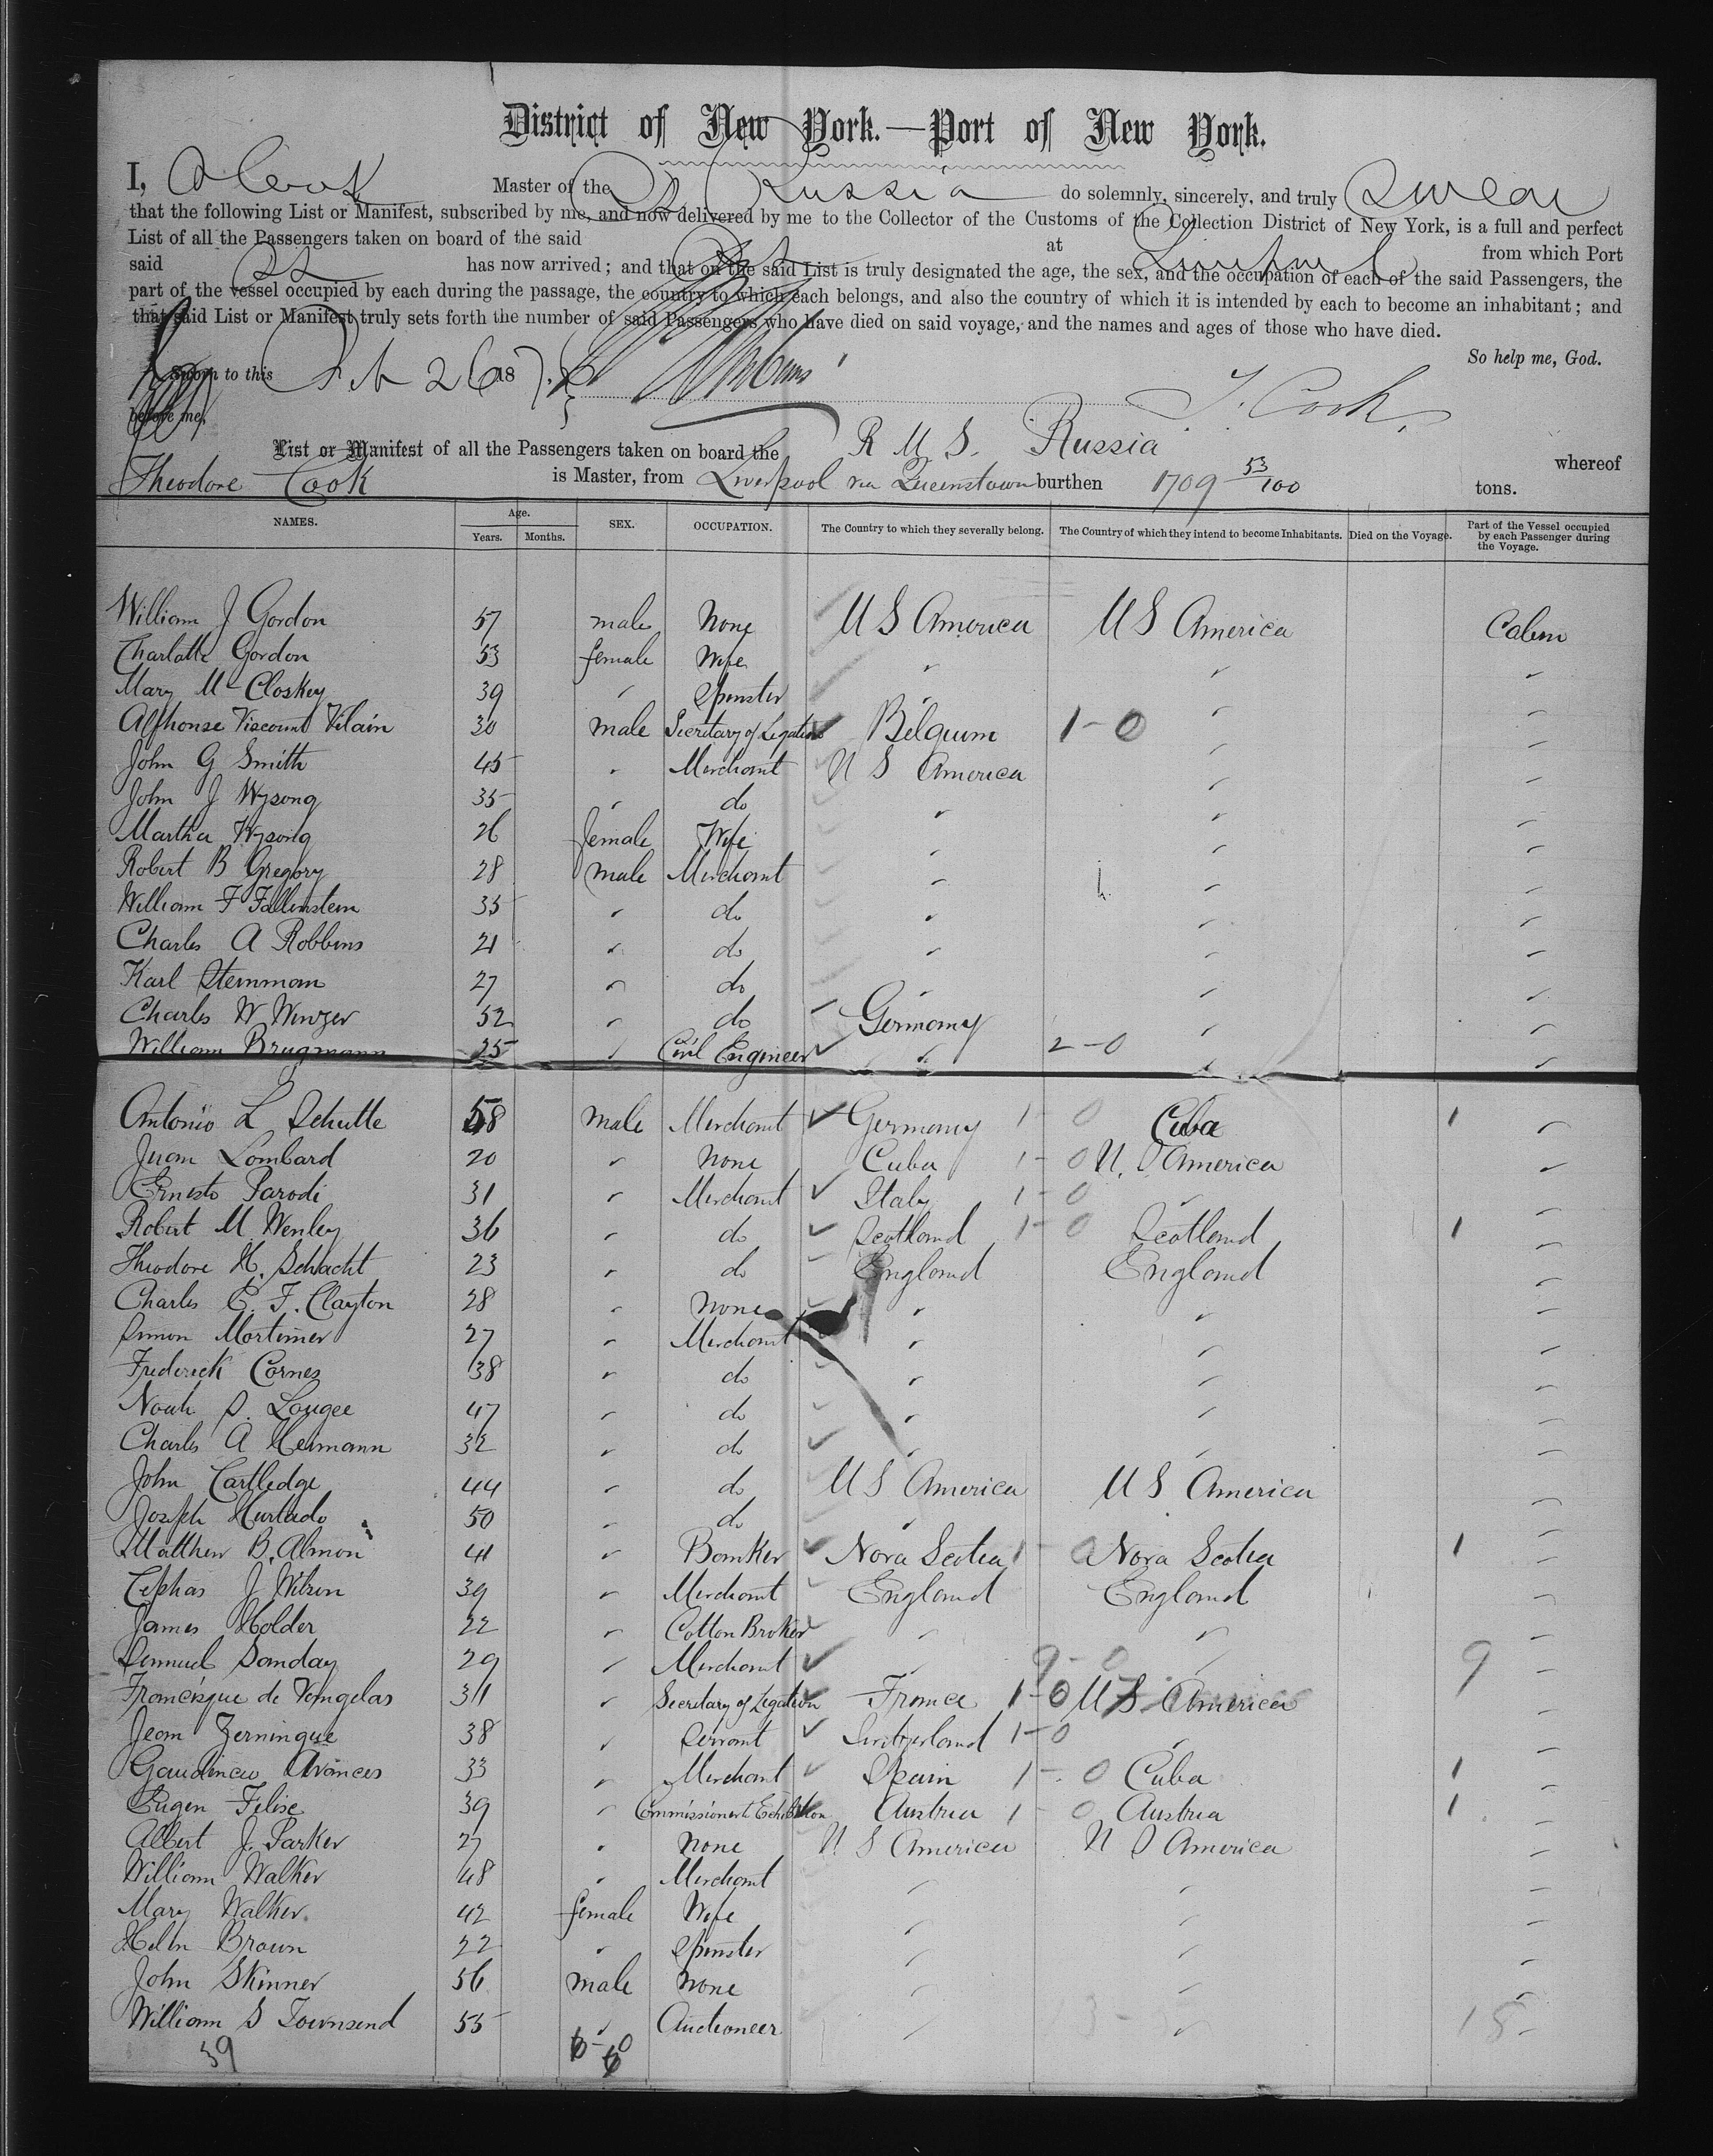 District of New York.—Port of New York.
I, Cook Master of the SS Russia do solemnly, sincerely, and truly Swear
that the following List or Manifest, subscribed by me, and now delivered by me to the Collector of the Customs of the Collection District of New York, is a full and perfect
List of all the Passengers taken on board of the said SS at Liverpool from which Port
said SS has now arrived; and that on the said List is truly designated the age, the sex, and the occupation of each of the said Passengers, the
part of the vessel occupied by each during the passage, the country to which each belongs, and also the country of which it is intended by each to become an inhabitant; and
that said List or Manifest truly sets forth the number of said Passengers who have died on said voyage, and the names and ages of those who have died.
So help me, God.
Sworn to this Feb 26 187
before me, T. Cook.
List or Manifest of all the Passengers taken on board the R M S. Russia whereof
Theodore Cook is Master, from Liverpool via Queenstown burthen 1709 53/100 tons.
NAMES. Age. Years. Months. SEX. OCCUPATION. The Country to which they severally belong. The Country of which they intend to become Inhabitants. Died on the Voyage. Part of the Vessel occupied by each Passenger during the Voyage.
William J Gordon 57 male None U S America U S America Cabin
Charlotte Gordon 53 female Wife " " "
Mary Mc Closkey 39 " Spinster " " "
Alphonse Viscount Vilain 30 male Secretary of Legation Belgium 1-0 " "
John G Smith 45 " Merchant U S America " "
John J Wysong 35 " do " " "
Martha Wysong 26 female Wife " " "
Robert B Gregory 28 male Merchant " " "
William F Fallenstein 35 " do " " "
Charles A Robbins 21 " do " " "
Karl Stemmann 27 " do " " "
Charles W Winzer 52 " do Germany " "
William Brugmann 25 " Civil Engineer " 2-0 " "
Antonio L Schutte 58 male Merchant Germany 1-0 Cuba 1 "
Juan Lombard 20 " None Cuba 1-0 U. S America "
Ernesto Parodi 31 " Merchant Italy 1-0 " "
Robert M Wenley 36 " do Scotland 1-0 Scotland 1 "
Theodore H. Schacht 23 " do England England "
Charles C. F. Clayton 28 " None " " "
Simon Mortimer 27 " Merchant " " "
Frederick Cornes 38 " do " " "
Noah S. Lougee 47 " do " " "
Charles A Heimann 32 " do " " "
John Cartledge 44 " do U S America U S America "
Joseph Hurtado 50 " do " "
Matthew B. Almon 41 " Banker Nova Scotia 1-0 Nova Scotia 1 "
Cephas J Wilson 39 " Merchant England England "
James Holder 22 " Cotton Broker " " "
Samuel Sanday 29 " Merchant " 9-0 " 9 "
Francisque de Vaugelas 31 " Secretary of Legation France 1-0 U S America "
Jean Zerningue 38 " Servant Switzerland 1-0 " "
Gaudencio Avances 33 " Merchant Spain 1-0 Cuba 1 "
Eugen Felise 39 " Commissioner to Exhibition Austria 1-0 Austria 1 "
Albert J. Parker 27 " None U S America U S America "
William Walker 48 " Merchant " " "
Mary Walker 42 female Wife " " "
Helen Brown 22 " Spinster " " "
John Skinner 56 male None " " "
William S Townsend 55 " Auctioneer " " 15 "
39